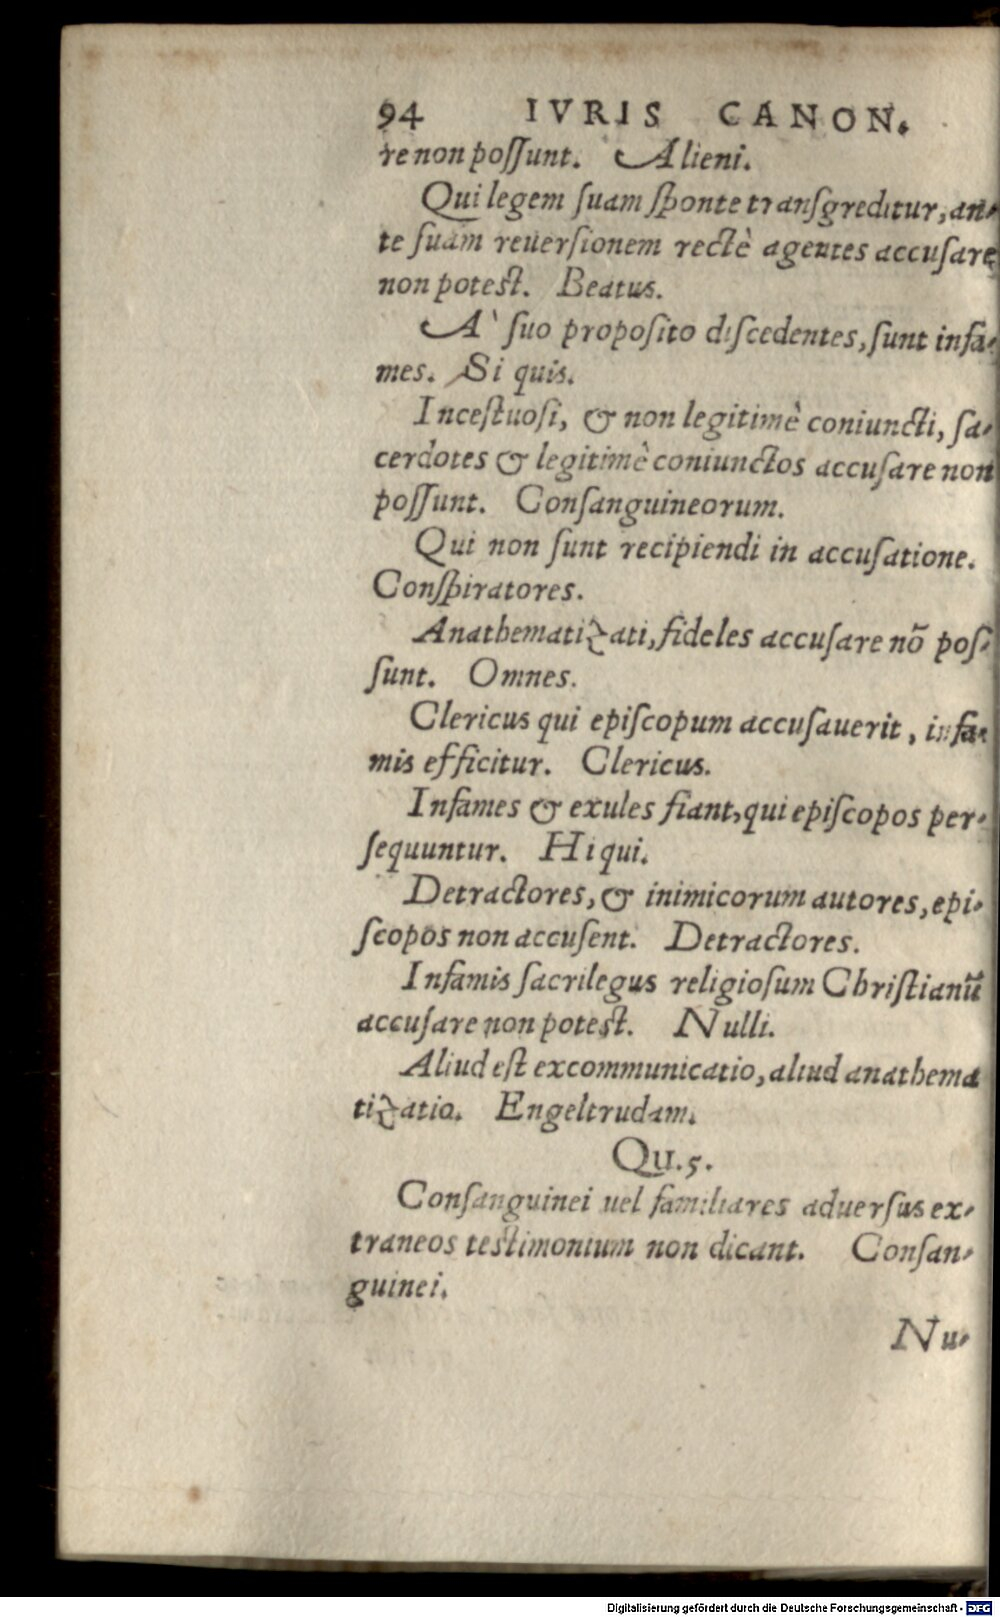 94 IVRIS CANON.
re non poſſunt. Alieni.
Qui legem ſuam ſponte tranſgreditur, an-
te ſuam reuerſionem rectè agentes accuſare
non potest. Beatus.
A` ſuo propoſito diſcedentes, ſunt infa-
mes. Si quis.
Inceſtuoſi, & non legitimè coniuncti, ſa-
cerdotes & legitimè coniunctos accuſare non
poſſunt. Conſanguineorum.
Qui non ſunt recipiendi in accuſatione.
Conſpiratores.
Anathematizati, fideles accuſare nō poſ-
ſunt. Omnes.
Clericus qui epiſcopum accuſauerit, infa-
mis efficitur. Clericus.
Infames & exules fiant, qui epiſcopos per-
ſequuntur. Hi qui.
Detractores, & inimicorum autores, epi-
ſcopos non accuſent. Detractores.
Infamis ſacrilegus religioſum Chriſtianū
accuſare non potest. Nulli.
Aliud eſt excommunicatio, aliud anathema
tizatio. Engeltrudam.
Qu. 5.
Conſanguinei uel familiares aduerſus ex-
traneos testimonium non dicant. Conſan-
guinei.
Nu-
Digitalisierung gefördert durch die Deutsche Forschungsgemeinschaft - DFG